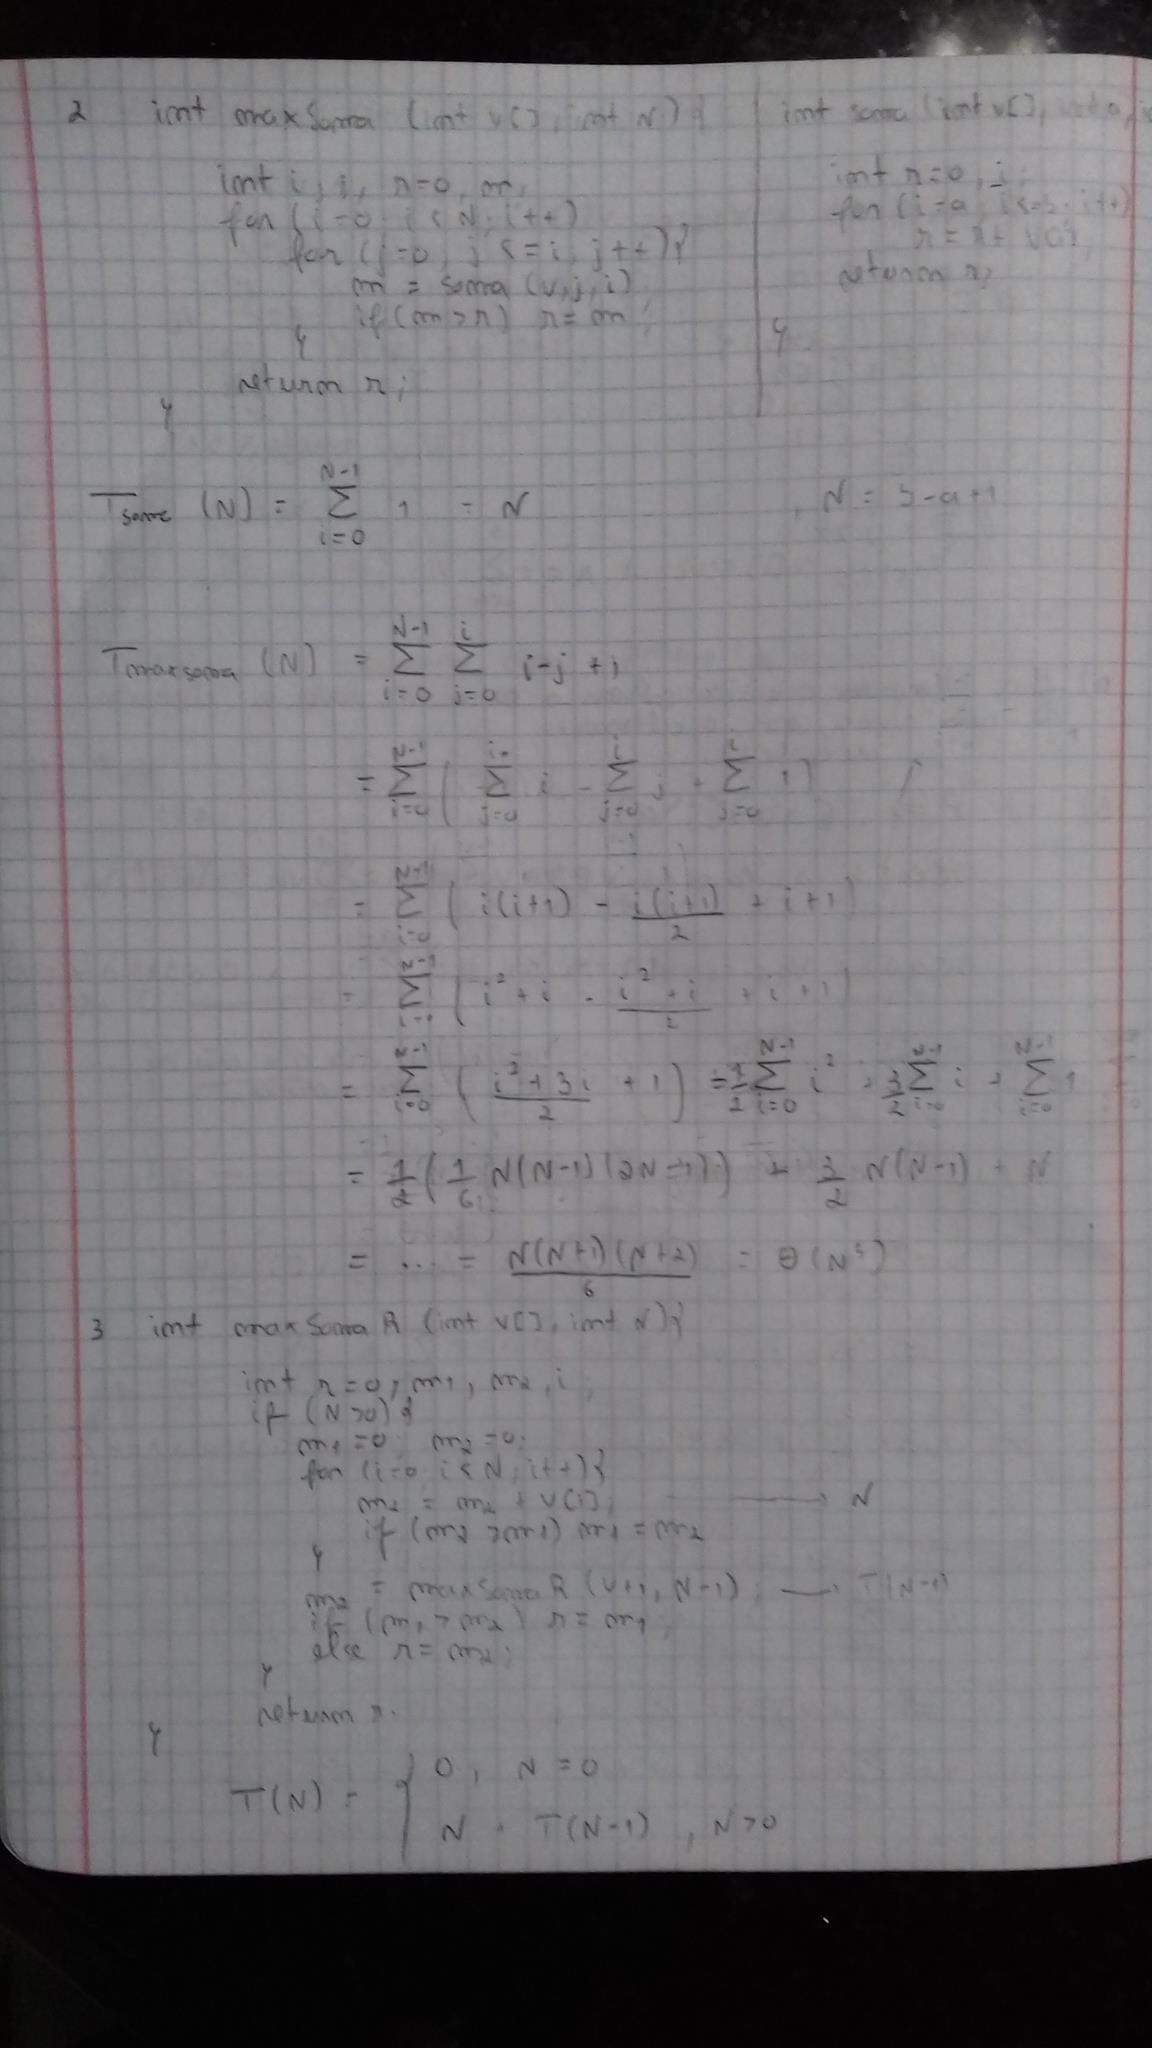 2 int maxSoma (int v[], int N) {
int i, j, r=0, m;
for (i=0; i<N; i++)
for (j=0; j<=i; j++){
m = soma (v,j,i)
if (m>r) r=m;
}
return r;
}
int soma (int v[], int a,
int r=0, i;
for (i=a; i<=b; i++)
r = r + v[i];
return r;
}
T soma (N) = N-1 Σ i=0 1 = N
N = b-a+1
T maxsoma (N) = N-1 Σ i=0 i Σ j=0 i-j+1
= N-1 Σ i=0 ( i Σ j=0 i - i Σ j=0 j + i Σ j=0 1 )
= N-1 Σ i=0 ( i(i+1) - i(i+1)/2 + i+1 )
= N-1 Σ i=0 ( i² + i - i²+i/2 + i + 1 )
= N-1 Σ i=0 ( i²+3i/2 + 1 ) = 1/2 N-1 Σ i=0 i² + 3/2 N-1 Σ i=0 i + N-1 Σ i=0 1
= 1/2 ( 1/6 N(N-1)(2N-1) ) + 3/2 N(N-1) + N
= ... = N(N+1)(N+2)/6 = Θ(N³)
3 int maxSomaR (int v[], int N){
int r=0, m1, m2, i;
if (N>0) {
m1=0; m2=0;
for (i=0; i<N; i++){
m2 = m2 + v[i]; → N
if (m2>m1) m1=m2
}
m2 = maxSomaR (v+1, N-1); → T(N-1)
if (m1>m2) r=m1;
else r=m2;
}
return r.
}
T(N) = { 0, N=0
N + T(N-1), N>0